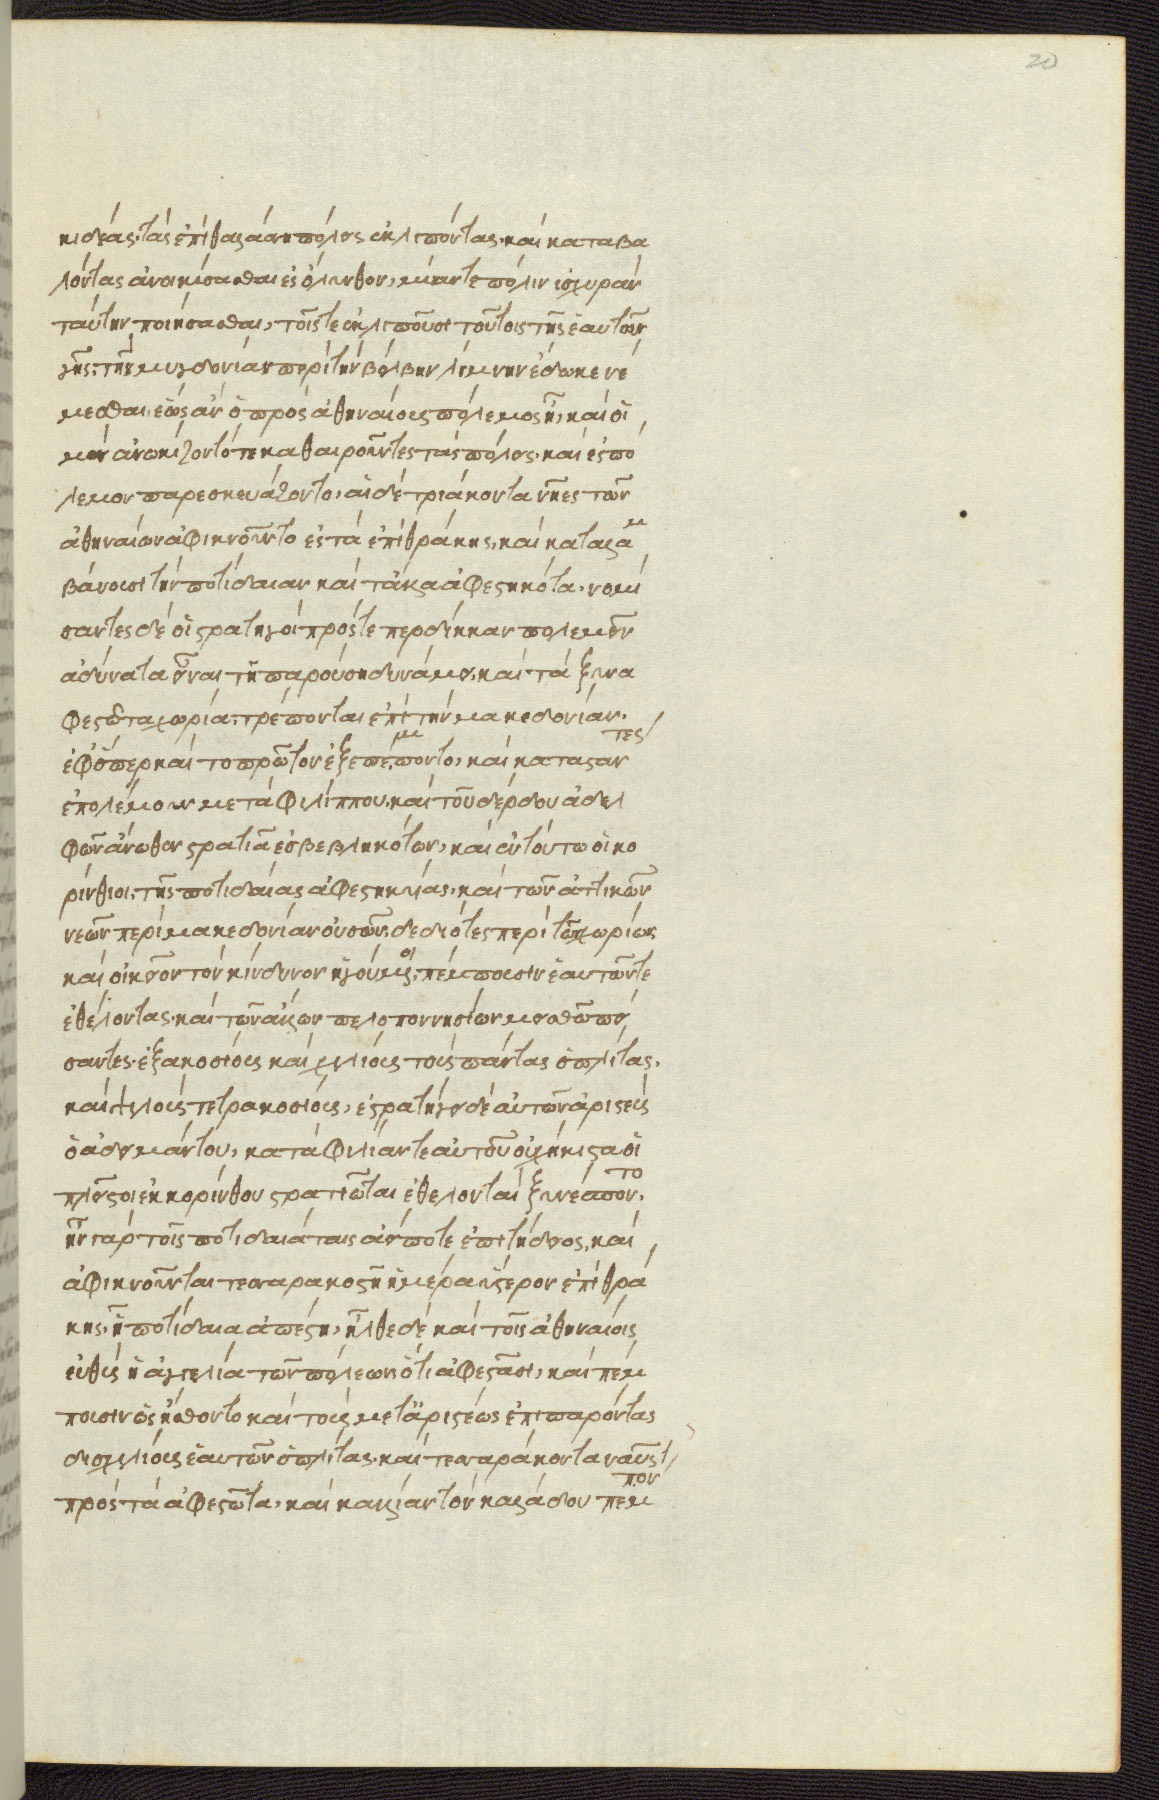 20
κιδέας, τὰς ἐπὶ θαλάσσῃ πόλεις ἐκλιπόντας, καὶ καταβα
λόντας ἀνοικίσασθαι ἐς ὄλυνθον, μίαν τε πόλιν ἰσχυρὰν
ταύτην ποιήσασθαι, τοῖς τε ἐκλιποῦσι τούτοις τῆς ἑαυτοῦ
γῆς, τῆς μυγδονίας περὶ τὴν βόλβην λίμνην ἔδωκε νέ
μεσθαι, ἕως ἂν ὁ πρὸς ἀθηναίους πόλεμος ᾖ, καὶ οἱ
μὲν ἀνῳκίζοντό τε καθαιροῦντες τὰς πόλεις, καὶ ἐς πό
λεμον παρεσκευάζοντο, αἱ δὲ τριάκοντα νῆες τῶν
ἀθηναίων ἀφικνοῦνται ἐς τὰ ἐπὶ θράκης, καὶ καταλαμ
βάνουσι τὴν ποτίδαιαν καὶ τἄλλα ἀφεστηκότα, νομί
σαντες δὲ οἱ στρατηγοὶ πρός τε περδίκκαν πολεμεῖν
ἀδύνατα εἶναι τῇ παρούσῃ δυνάμει, καὶ τὰ ξυνα
φεστῶτα χωρία, τρέπονται ἐπὶ τὴν μακεδονίαν,
ἐφ᾽ ὅπερ καὶ το πρῶτον ἐξεπέμποντο, καὶ καταστάντες
ἐπολέμουν μετὰ φιλίππου, καὶ τοῦ δέρδου ἀδελ
φῶν ἄνωθεν στρατιᾷ ἐσβεβληκότων, καὶ ἐν τούτω οἱ κο
ρίνθιοι, τῆς ποτιδαίας ἀφεστηκυίας, καὶ τῶν ἀττικῶν
νεῶν περὶ μακεδονίαν οὐσῶν, δεδιότες περὶ τῷ χωρίω
καὶ οἰκεῖον τὸν κίνδυνον ἡγούμενοι, πέμπουσιν ἑαυτῶν τε
ἐθέλοντας, καὶ τῶν ἄλλων πελοποννησίων μισθῷ πεί
σαντες, ἑξακοσίους καὶ χιλίους τοὺς πάντας ὁπλίτας,
καὶ ψιλοὺς τετρακοσίους, ἐστρατήγει δὲ αὐτῶν ἀριστεὺς
ὁ ἀδειμάντου, κατὰ φιλίαν τε αὐτοῦ οὐχ ἥκιστα οἱ
πλεῖστοι ἐκ κορίνθου στρατιῶται ἐθελονταὶ ξυνέσποντο,
ἦν γὰρ τοῖς ποτιδαιάταις ἀεί ποτε ἐπιτήδειος, καὶ
ἀφικνοῦνται τεσσαρακοστῇ ἡμέρᾳ ὕστερον ἐπὶ θρά
κης, ᾗ ποτίδαια ἀπέστη, ἦλθε δὲ καὶ τοῖς ἀθηναίοις
εὐθὺς ἡ ἀγγελία τῶν πόλεων ὅτι ἀφεστᾶσι, καὶ πέμ
πουσιν ὡς ᾔσθοντο καὶ τοὺς μετ᾽ ἀριστέως ἐπιπαρόντας
δισχιλίους ἑαυτῶν ὁπλίτας, καὶ τεσσαράκοντα ναῦς
πρὸς τὰ ἀφεστῶτα, καὶ καλλίαν τὸν καλλιάδου πέμπτον